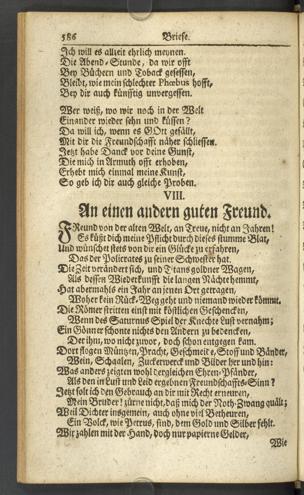 586 Briefe.
Ich will es allzeit ehrlich meynen.
Die Abend-Stunde, da wir offt
Bey Büchern und Toback gesessen,
Bleibt, wie mein schlechter Phœbus hofft,
Bey dir auch künfftig unvergessen.
Wer weiß, wo wir noch in der Welt
Einander wieder sehn und küssen?
Da will ich, wenn es GOtt gefällt,
Mit dir die Freundschafft näher schliessen.
Jetzt habe Danck vor deine Gunst,
Die mich in Armuth offt erhoben,
Erhebt mich einmal meine Kunst,
So geb ich dir auch gleiche Proben.
VIII.
An einen andern guten Freund.
FReund von der alten Welt, an Treue, nicht an Jahren!
Es küßt dich meine Pflicht durch dieses stumme Blat,
Und wünschet stets von dir ein Glücke zu erfahren,
Das der Policrates zu seiner Schwester hat.
Die Zeit verändert sich, und Titans goldner Wagen,
Als dessen Wiederkunfft die langen Nächte hemmt,
Hat abermahls ein Jahr an jenen Ort getragen,
Woher kein Rück-Weg geht und niemand wieder kömmt.
Die Römer stritten einst mit köstlichen Geschencken,
Wenn des Saturnus Spiel der Knechte Lust vernahm;
Ein Gönner schonte nichts den Andern zu bedencken,
Der ihm, wo nicht zuvor, doch schon entgegen kam.
Dort flogen Müntzen, Pracht, Geschmeide, Stoff und Bänder,
Wein, Schaalen, Zuckerwerck und Bilder her und hin:
Was anders zeigten wohl dergleichen Ehren-Pfänder,
Als den in Lust und Leid ergebnen Freundschaffts-Sinn?
Jetzt solt ich den Gebrauch an dir mit Recht erneuren,
Mein Bruder! zürne nicht, daß mich der Noth-Zwang quält;
Weil Dichter insgemein, auch ohne viel Betheuren,
Ein Volck, wie Petrus, sind, dem Gold und Silber fehlt.
Wir zahlen mit der Hand, doch nur papierne Gelder,
Wie